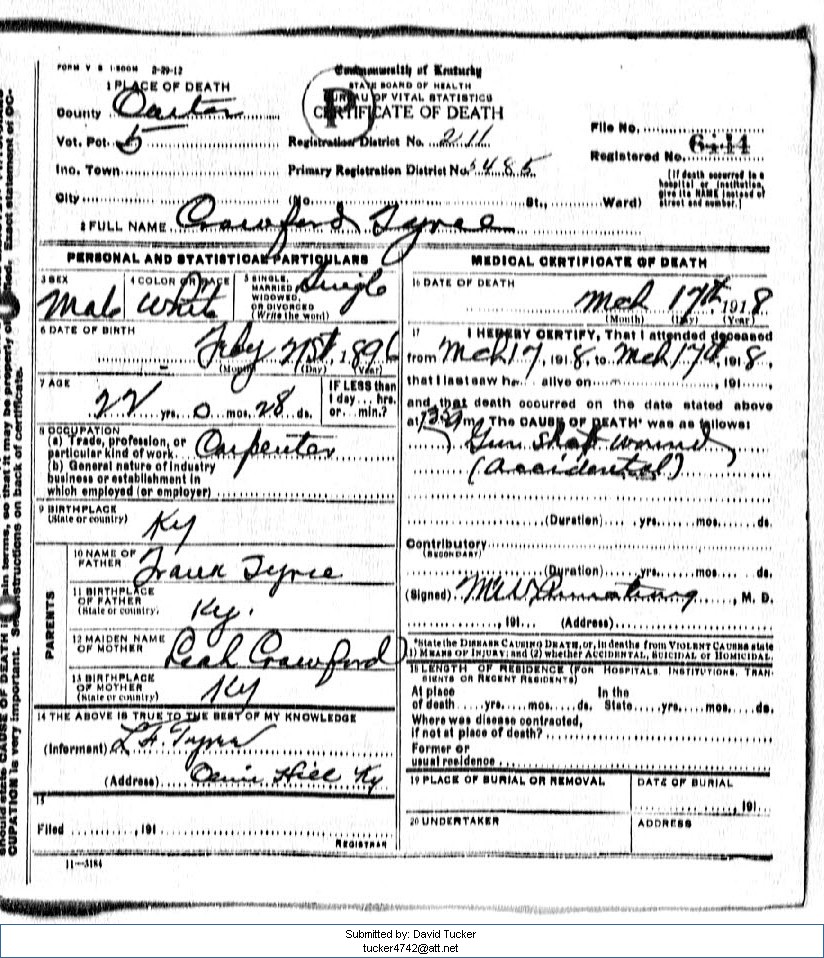 FORM V S 1-500M 2-29-12
Commonwealth of Kentucky
STATE BOARD OF HEALTH
BUREAU OF VITAL STATISTICS
CERTIFICATE OF DEATH
P
1 PLACE OF DEATH
County Carter
Vot. Pct. 5
Inc. Town
City
Registration District No. 211
Primary Registration District No. 5485
(No. St., Ward)
File No.
Registered No.
[If death occurred in a
hospital or institution,
give its NAME instead of
street and number.]
2 FULL NAME Crawford Tyree
PERSONAL AND STATISTICAL PARTICULARS
3 SEX
Male
4 COLOR OR RACE
White
5 SINGLE,
MARRIED
WIDOWED,
OR DIVORCED
(Write the word)
Single
6 DATE OF BIRTH
Feby 21st, 1896
(Month) (Day) (Year)
7 AGE
22 yrs. 0 mos. 28 ds.
IF LESS than
1 day... hrs.
or... min.?
8 OCCUPATION
(a) Trade, profession, or
particular kind of work. Carpenter
(b) General nature of industry
business or establishment in
which employed (or employer)
9 BIRTHPLACE
(State or country)
Ky
PARENTS
10 NAME OF
FATHER
Frank Tyree
11 BIRTHPLACE
OF FATHER
(State or country)
Ky.
12 MAIDEN NAME
OF MOTHER
Leah Crawford
13 BIRTHPLACE
OF MOTHER
(State or country)
Ky
14 THE ABOVE IS TRUE TO THE BEST OF MY KNOWLEDGE
(Informant) L. F. Tyree
(Address) Olive Hill Ky
15
Filed , 191
REGISTRAR
11-3184
MEDICAL CERTIFICATE OF DEATH
16 DATE OF DEATH
Mch 17th, 1918
(Month) (Day) (Year)
17 I HEREBY CERTIFY, That I attended deceased
from Mch 17, 1918, to Mch 17th, 1918,
that I last saw h alive on , 191 ,
and that death occurred on the date stated above
at m. The CAUSE OF DEATH* was as follows:
Gun shot wound
(Accidental)
(Duration) yrs. mos. ds.
Contributory
(SECONDARY)
(Duration) yrs. mos. ds.
(Signed) Armstrong, M. D.
, 191 (Address)
*State the DISEASE CAUSING DEATH, or, in deaths from VIOLENT CAUSES state
1) MEANS OF INJURY; and (2) whether ACCIDENTAL, SUICIDAL or HOMICIDAL.
18 LENGTH OF RESIDENCE (FOR HOSPITALS, INSTITUTIONS, TRAN-
SIENTS OR RECENT RESIDENTS)
At place In the
of death yrs. mos. ds. State yrs. mos. ds.
Where was disease contracted,
if not at place of death?
Former or
usual residence
19 PLACE OF BURIAL OR REMOVAL
DATE OF BURIAL
, 191
20 UNDERTAKER
ADDRESS
Submitted by: David Tucker
tucker4742@att.net